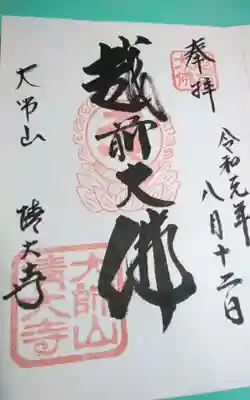 奉拝
令和元年
八月十二日
越前大佛
大師山
清大寺
大師山
清大寺